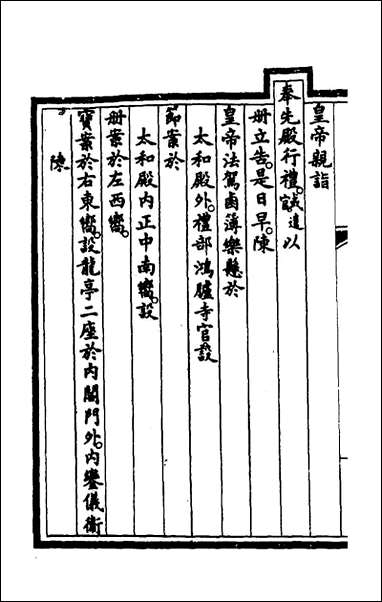 皇帝親詣
奉先殿行禮。誠遣以
册立告。是日早。陳
皇帝法駕鹵簿樂懸於
太和殿外。禮部鴻臚寺官設
節案於
太和殿内正中南嚮。設
册案於左西嚮。
寶案於右東嚮。設龍亭二座於内閣門外。内鑾儀衛
陳